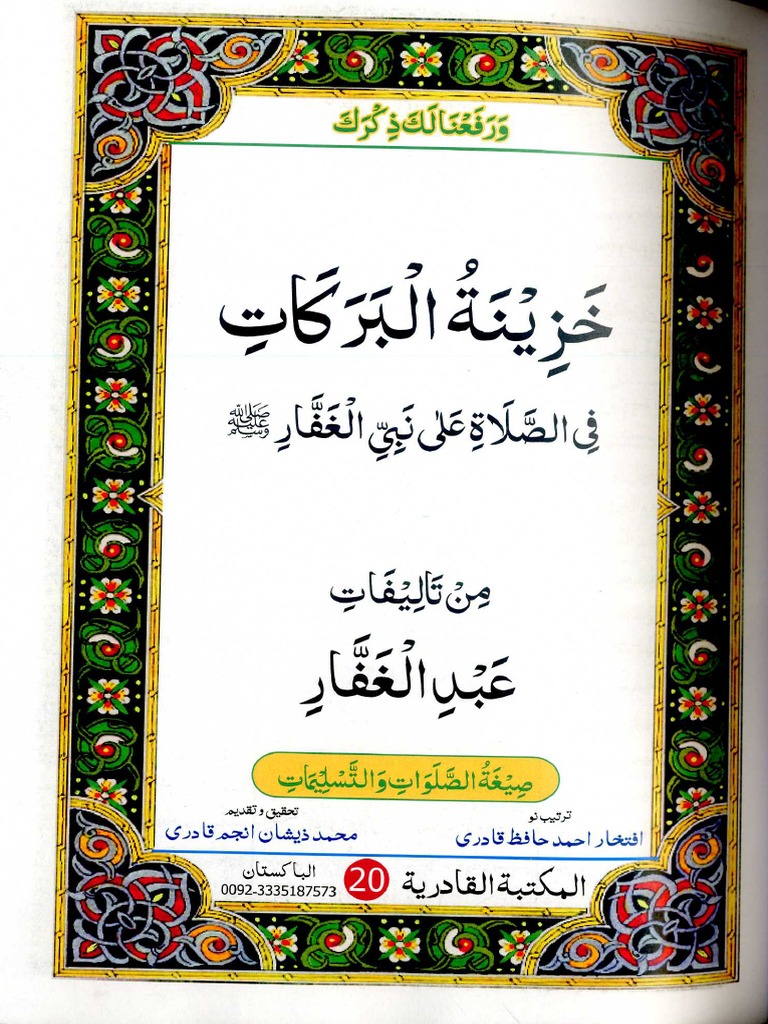 وَرَفَعْنَا لَكَ ذِكْرَكَ
خَزِيْنَةُ الْبَرَكَاتِ
فِي الصَّلَاةِ عَلٰى نَبِيِّ الْغَفَّارِ ﷺ
مِنْ تَالِيْفَاتِ
عَبْدِ الْغَفَّارِ
صِيْغَةُ الصَّلَوَاتِ وَالتَّسْلِيْمَاتِ
ترتیب نو تحقیق و تقدیم
افتخار احمد حافظ قادری محمد ذیشان انجم قادری
المكتبة القادرية 20 الباكستان
0092-3335187573